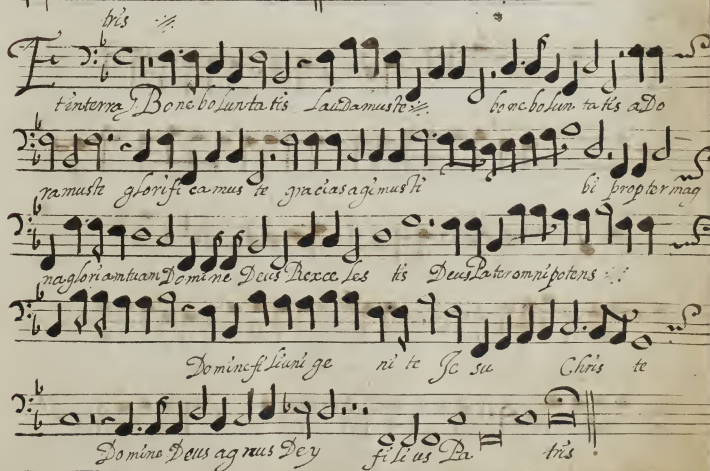 tris
Et
tinterra Bone boluntatis Laudamuste bone boluntatis aDo
ramuste glorificamus te graciasagimusti bi proptermag
nagloriamtuam Domine Deus Rexce les tis DeusPateromnipotens
Dominefiliunige ni te Je su Chris te
Domine Deus agnus Dey filius Pa tris